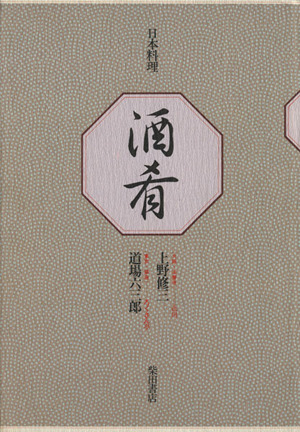 日本料理
酒肴
上野修三
道場六三郎
柴田書店